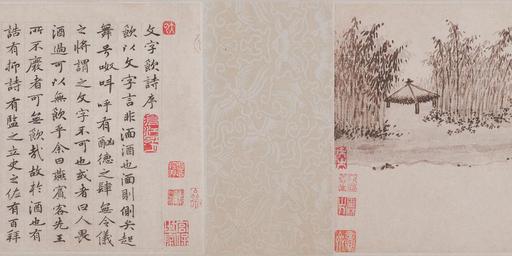 文字飲詩序
飲以文字言非湎酒也湎則側弁起
舞号呶叫呼有酗德之肆無令儀
之將謂之文字不可也或者曰人畏
酒過可以無飲乎余曰燕賓客先王
所不廢者可無飲哉故於酒也有
誥有抑詩有監之立史之佐有百拜